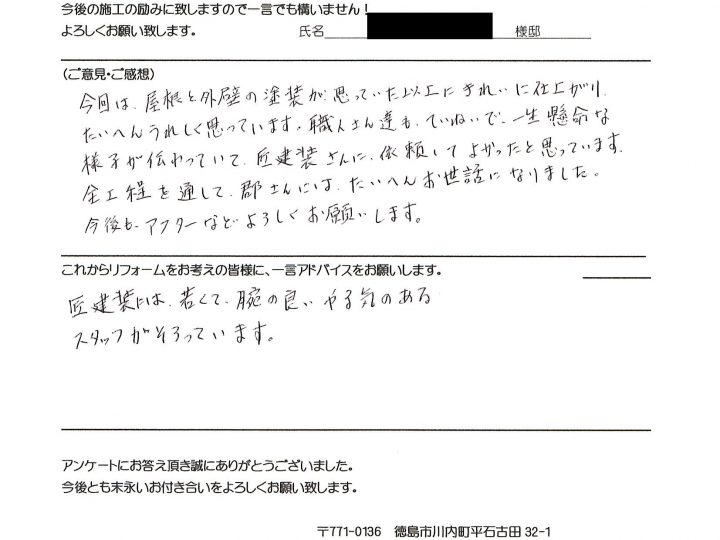 今後の施工の励みに致しますので一言でも構いません！
よろしくお願い致します。 氏名 様邸
（ご意見・ご感想）
今回は、屋根と外壁の塗装が思っていた以上にきれいに仕上がり、
たいへんうれしく思っています。職人さん達も、ていねいで、一生懸命な
様子が伝わっていて、匠建装さんに、依頼してよかったと思っています。
全工程を通して、郡さんには、たいへんお世話になりました。
今後も、アフターなどよろしくお願いします。
これからリフォームをお考えの皆様に、一言アドバイスをお願いします。
匠建装には、若くて、腕の良い、やる気のある
スタッフがそろっています。
アンケートにお答え頂き誠にありがとうございました。
今後とも末永いお付き合いをよろしくお願い致します。
〒771-0136 徳島市川内町平石古田 32-1